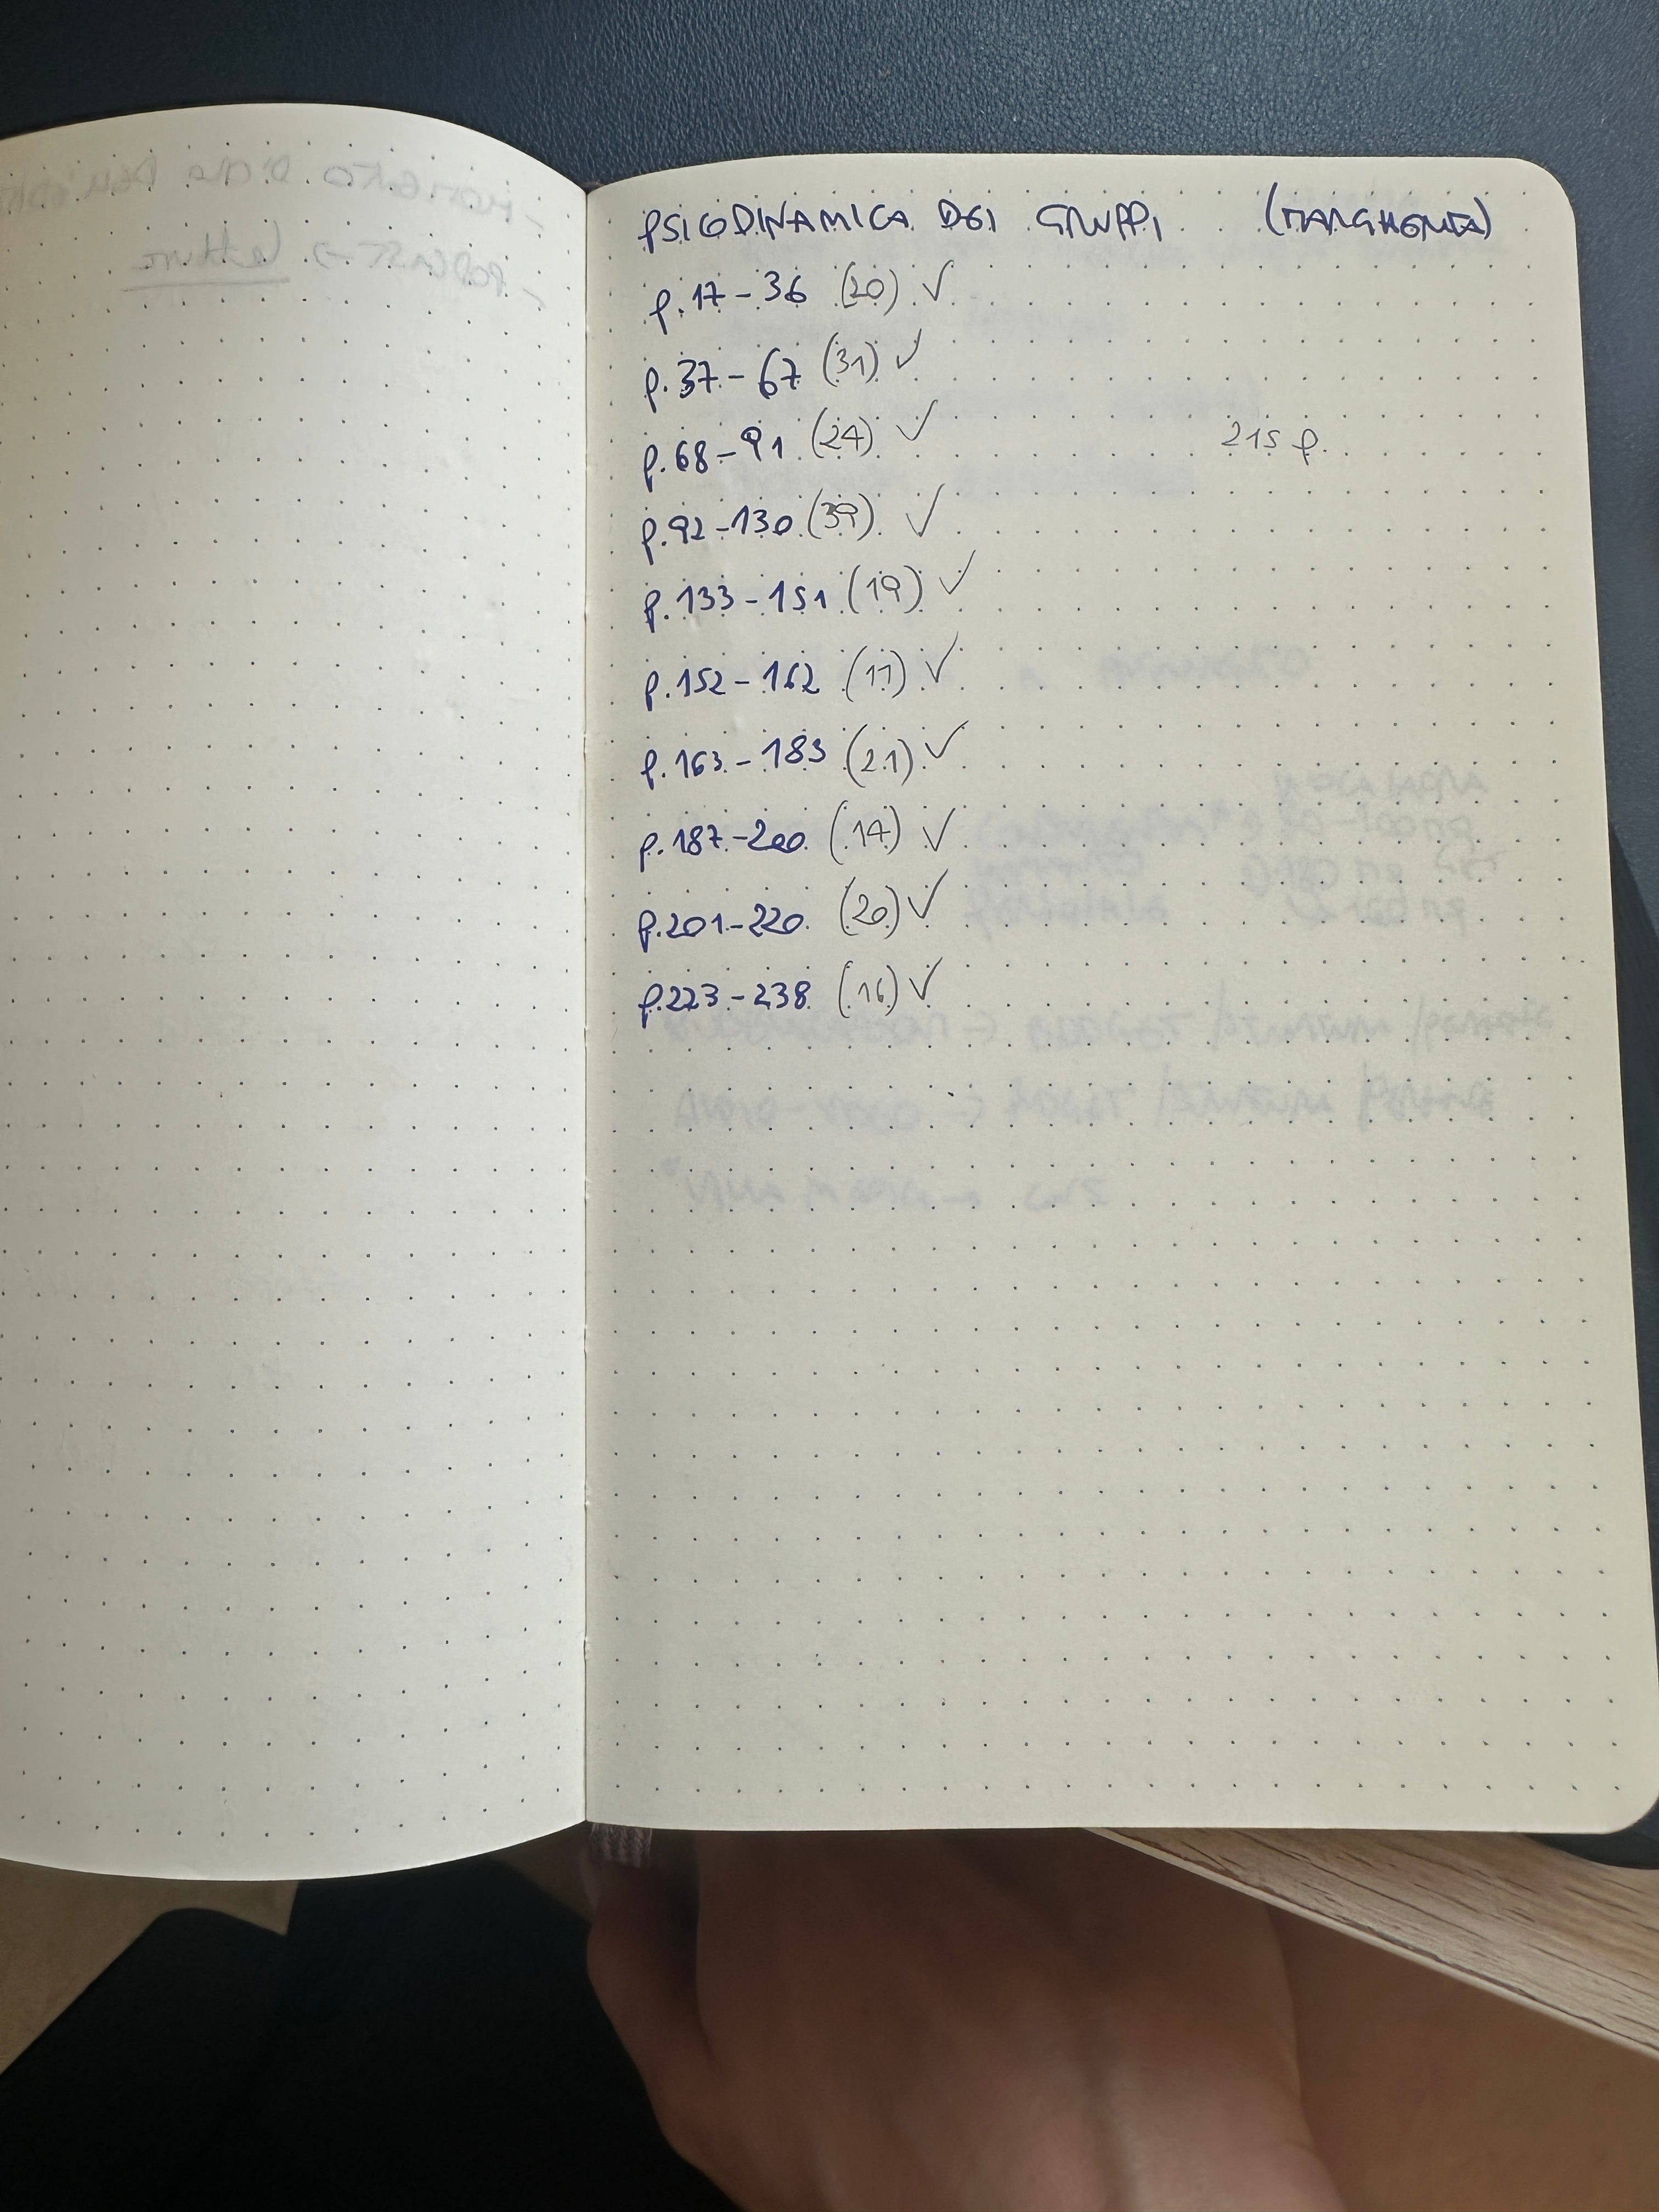 PSICODINAMICA DEI GRUPPI (MARGHERITA)
p. 17 - 36 (20) ✓
p. 37 - 67 (31) ✓
p. 68 - 91 (24) ✓
215 p.
p. 92 - 130 (39) ✓
p. 133 - 151 (19) ✓
p. 152 - 162 (11) ✓
p. 163 - 183 (21) ✓
p. 187 - 200 (14) ✓
p. 201 - 220 (20) ✓
p. 223 - 238 (16) ✓